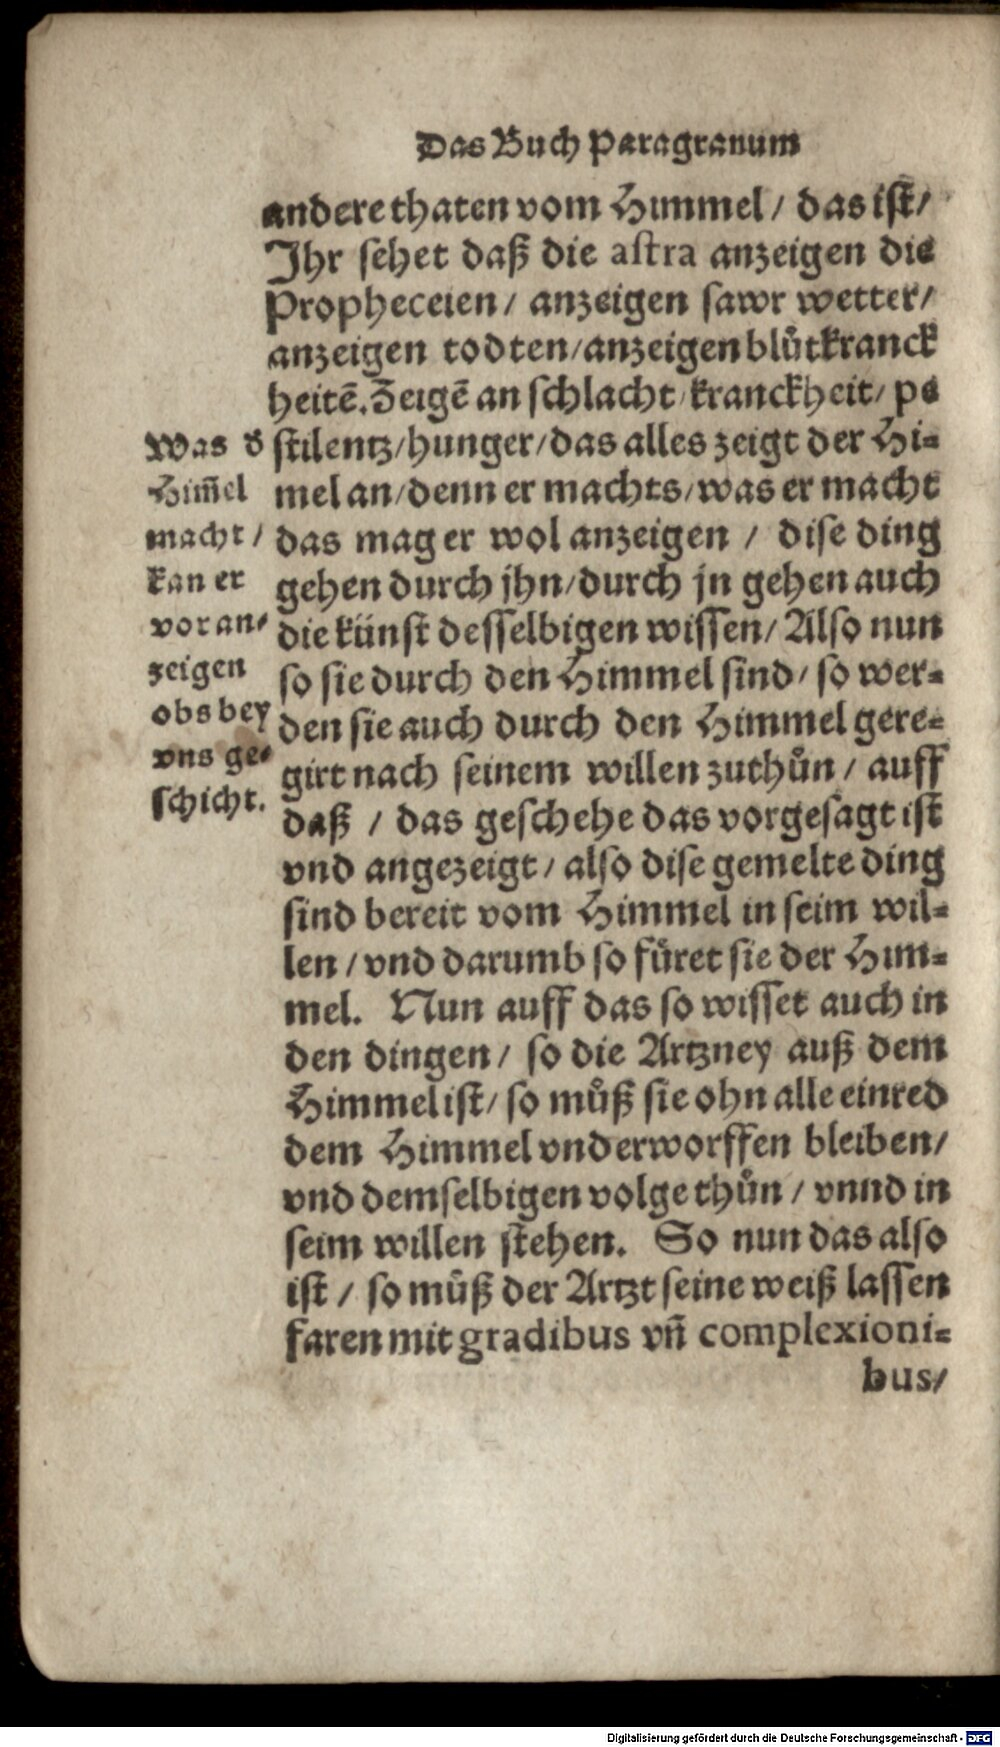 Das Buch Paragranum
andere thaten vom Himmel / das ist /
Ihr sehet daß die astra anzeigen die
Propheceien / anzeigen sawr wetter /
anzeigen todten / anzeigen blůtkranck
heitē. Zeigē an schlacht / kranckheit / pe
stilentz / hunger / das alles zeigt der Hi=
mel an / denn er machts / was er macht
das mag er wol anzeigen / dise ding
gehen durch jhn / durch jn gehen auch
die künst desselbigen wissen / Also nun
so sie durch den Himmel sind / so wer=
den sie auch durch den Himmel gere=
girt nach seinem willen zuthůn / auff
daß / das geschehe das vorgesagt ist
vnd angezeigt / also dise gemelte ding
sind bereit vom Himmel in seim wil=
len / vnd darumb so füret sie der Him=
mel. Nun auff das so wisset auch in
den dingen / so die Artzney auß dem
Himmel ist / so můß sie ohn alle einred
dem Himmel vnderworffen bleiben /
vnd demselbigen volge thůn / vnnd in
seim willen stehen. So nun das also
ist / so můß der Artzt seine weiß lassen
faren mit gradibus vñ complexioni=
bus /
Was d̕
Him̄el
macht /
kan er
vor an=
zeigen
obs bey
vns ge=
schicht.
Digitalisierung gefördert durch die Deutsche Forschungsgemeinschaft - DFG